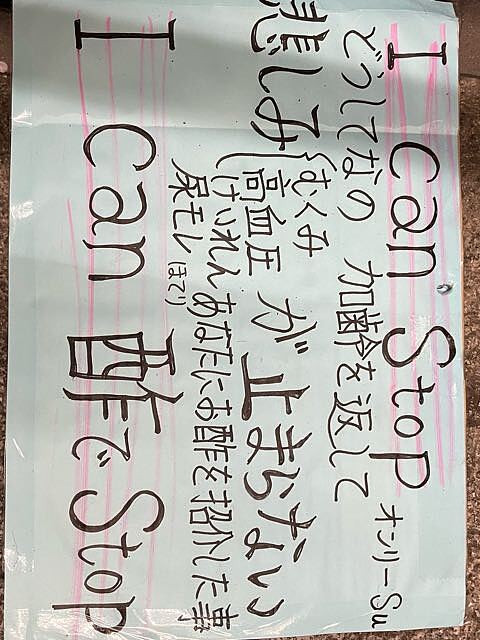 I can Stop
オンリーSu
どうしてなの 加齢を返して
悲しみ
むくみ
高血圧
けいれん
尿モレ
が止まらない
あなたにお酢を紹介した事
I can 酢で Stop